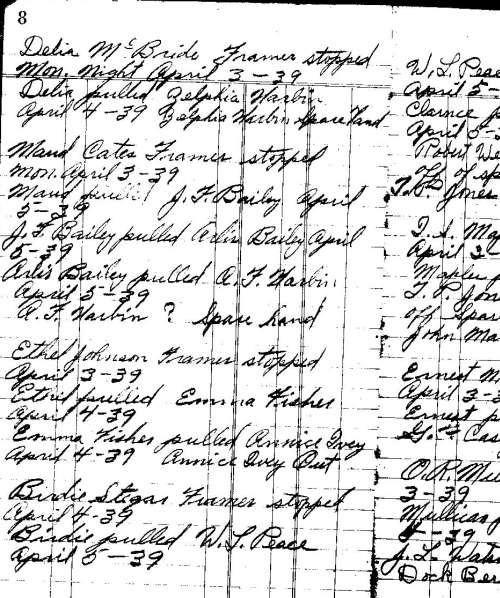 8
Delia McBride Framer stopped
Mon. Night April 3-39
Delia pulled Zelphia Harbin
April 4-39 Zelphia Harbin Spare Hand
Maud Cates Framer stopped
Mon. April 3-39
Maud pulled J. F. Bailey April
5-39
J. F. Bailey pulled Arlis Bailey April
5-39
Arlis Bailey pulled A. F. Harbin
April 5-39
A. F. Harbin ? Spare hand
Ethel Johnson Framer stopped
April 3-39
Ethel pulled Emma Fisher
April 4-39
Emma Fisher pulled Annice Ivey
April 4-39 Annice Ivey Out
Birdie Framer stopped
April 4-39
Birdie pulled W. L. Peace
April 5-39
W. L. Peace
April 5-
Clarice p
April 5-3
Robert We
off of sp
T. P. Jones
April 3
Mapler p
T. P. Jon
off Spar
John Ma
Ernest M
April 3-3
Ernest p
G. Cas
O. R. Mul
3-39
4-39
J. L. Wats
Dock Ber